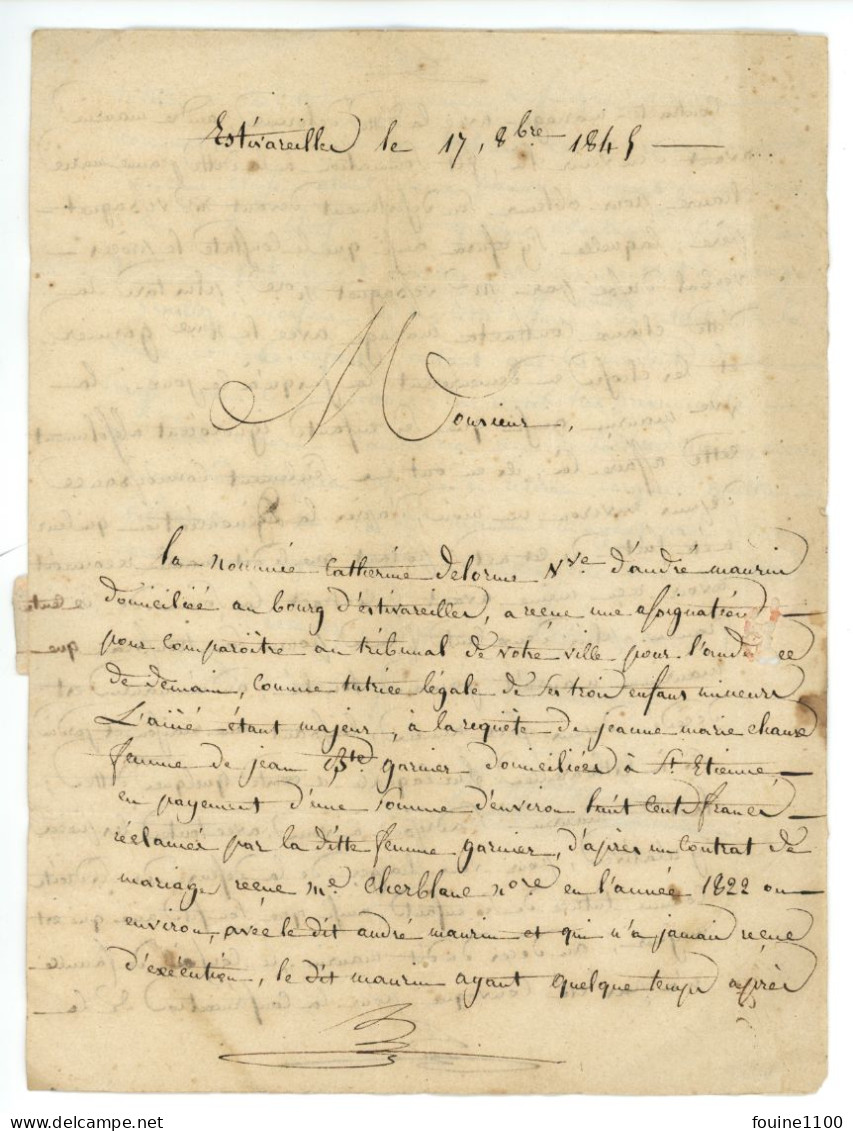 Estivareilles le 17, 8bre 1845
Monsieur,
la nommée Catherine Delorme Vve d'andré maurin
domiciliée au bourg d'estivareilles, a reçue une assignation
pour comparoître au tribunal de votre ville pour l'audience
de demain, comme tutrice légale de ses trois enfans mineurs
L'aîné étant majeur, à la requête de jeanne marie chauve
femme de jean Bte garnier domiciliées à St Etienne
en payement d'une somme d'environ huit Cents francs
réclamée par la ditte femme garnier, d'après un Contrat de
mariage reçue me Cherblanc nore en l'année 1822 ou
environ, avec le dit andré maurin et qui n'a jamais reçue
d'exécution, le dit maurin ayant quelque temps après
delcampe.net
fouine1100